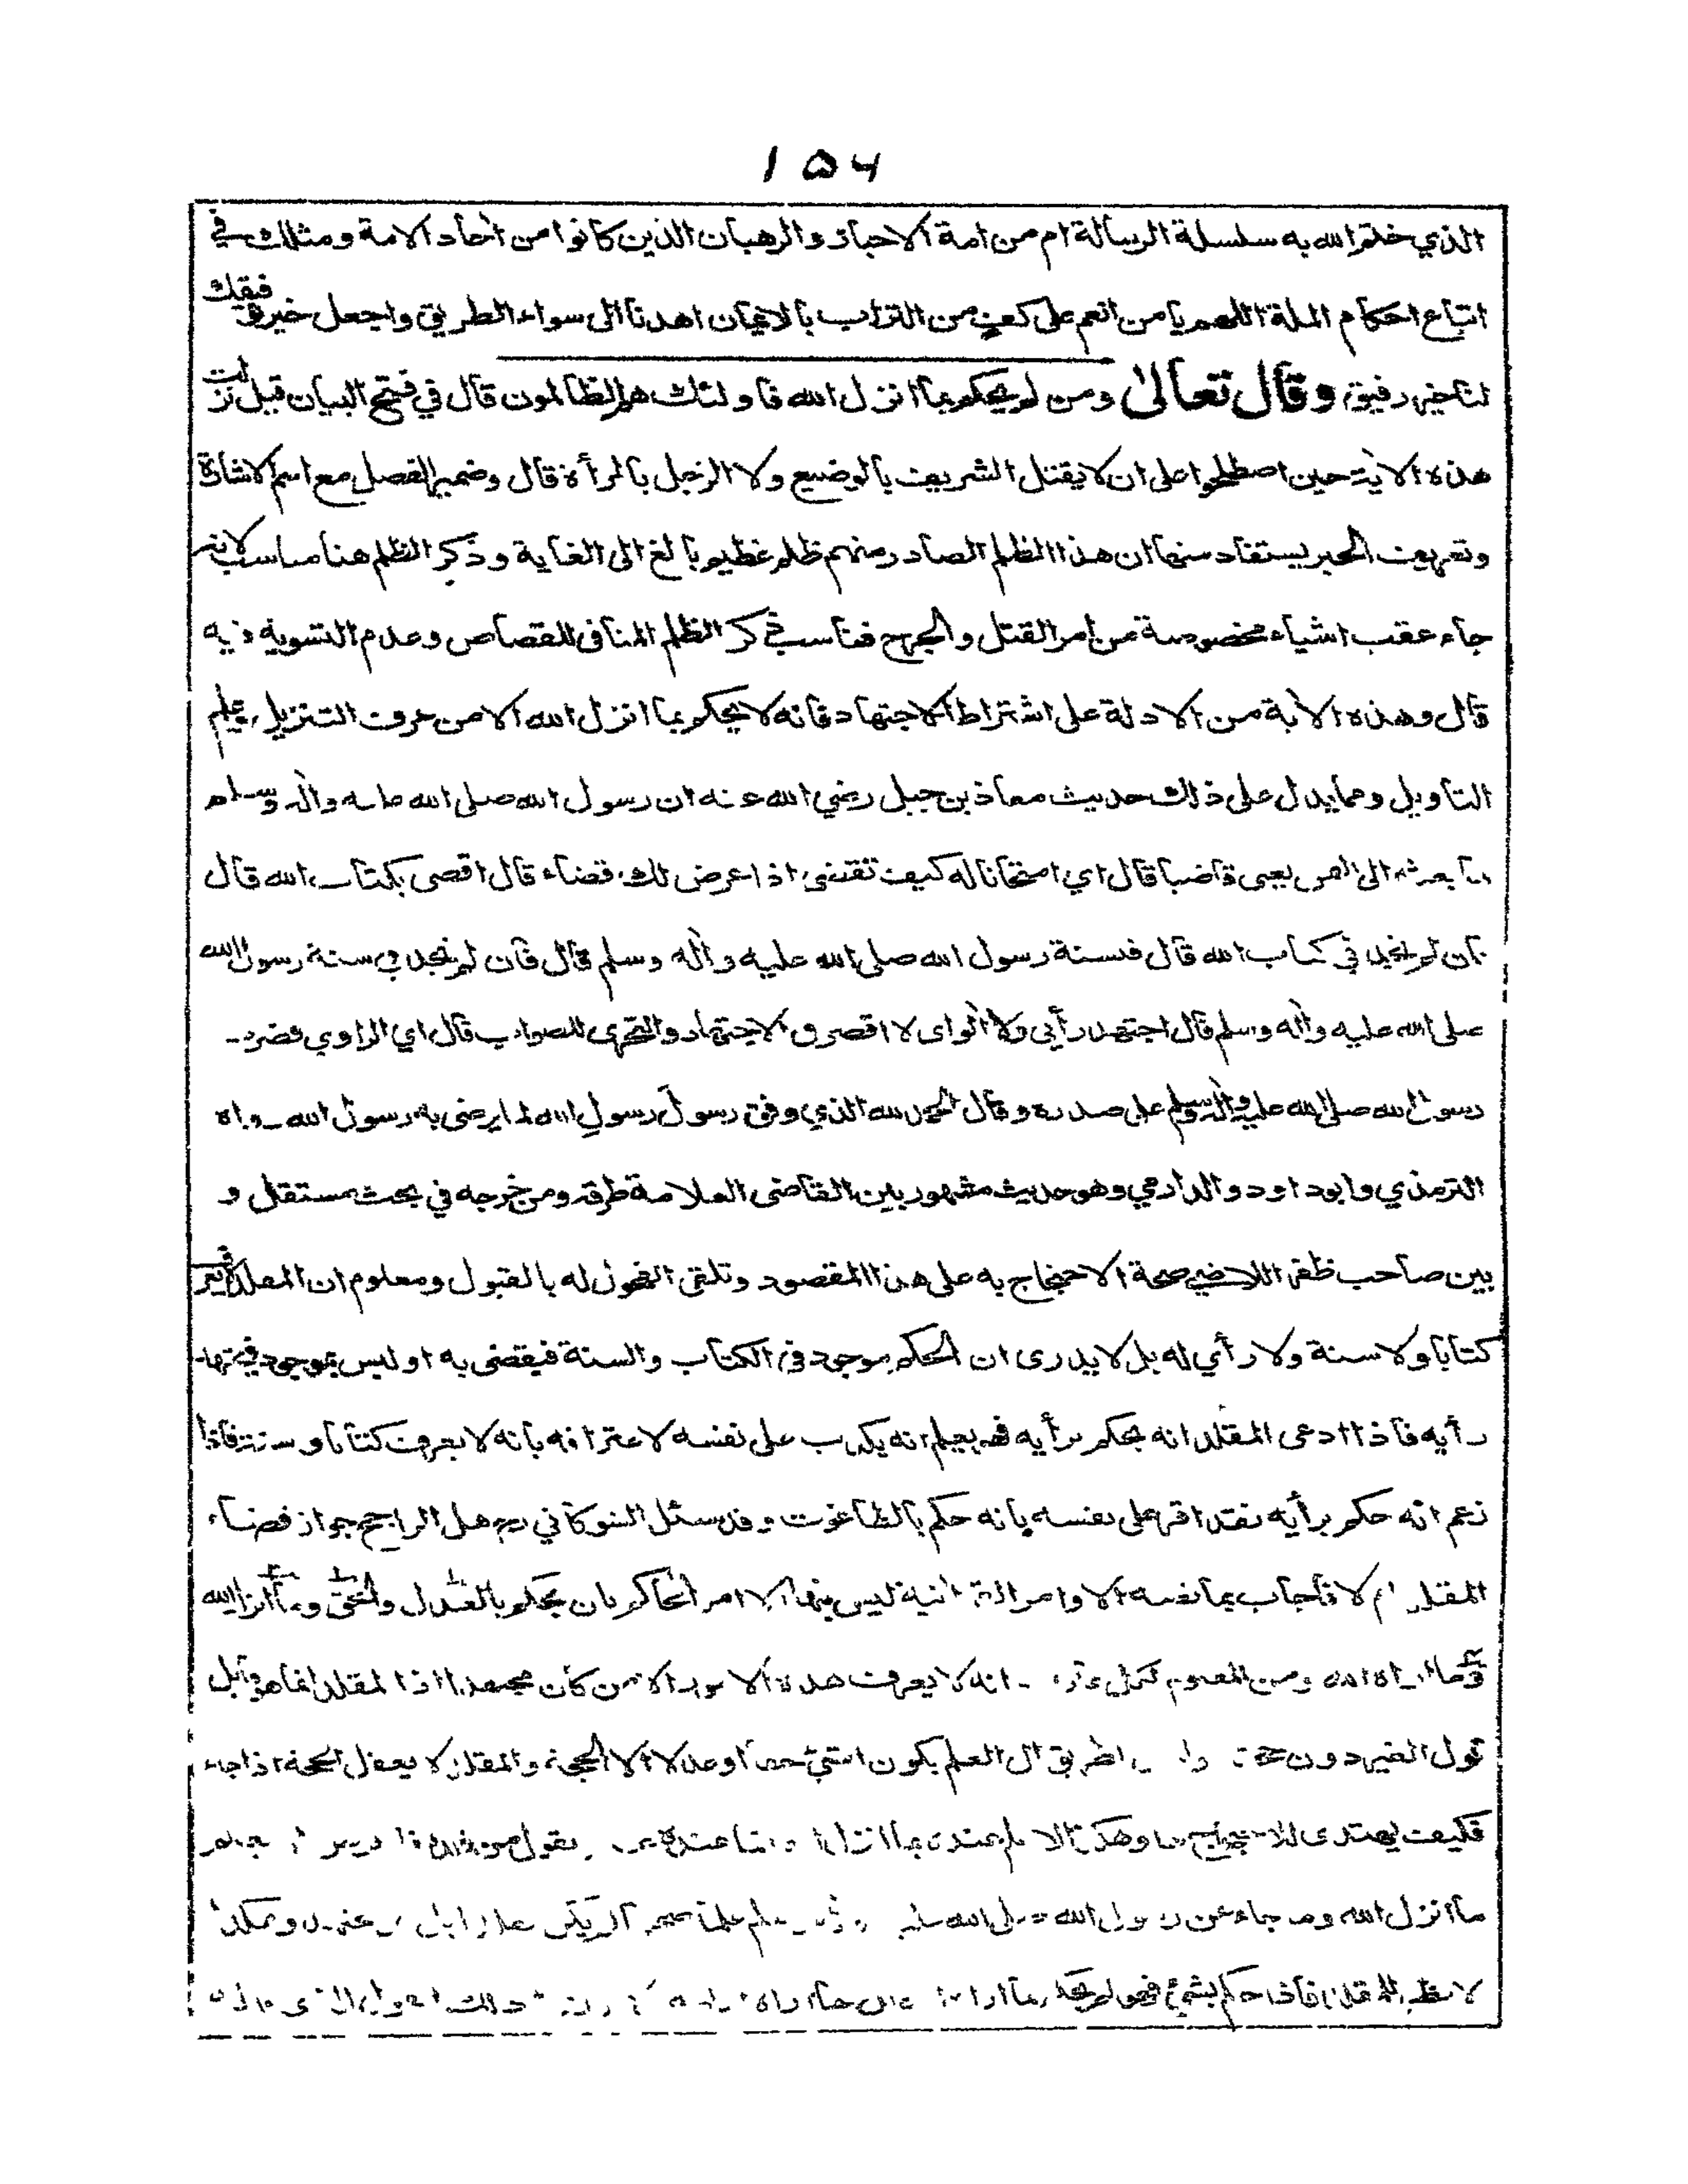 ۱۵۴
الذي ختم الله به سلسلة الرسالة ام من امة الاحبار والرهبان الذين كانوا من آحاد الامة ومثلك في
اتباع احكام الملة اللهم يا من انعم على كف من التراب بالايمان اهدنا الى سواء الطريق واجعل خير توفيقك
لنا خير رفيق وقال تعالى ومن لم يحكم بما انزل الله فاولئك هم الظالمون قال في فتح البيان قيل نزلت
هذه الاية حين اصطلحوا على ان لا يقتل الشريف بالوضيع ولا الرجل بالمرأة قال وضمير الفصل مع اسم الاشارة
وتعريف الخبر يستفاد منها ان هذا الظلم الصادر منهم ظلم عظيم بالغ الى الغاية وذكر الظلم هنا مناسب لانه
جاء عقب اشياء مخصوصة من امر القتل والجرح فناسب ذكر الظلم المنافى للقصاص وعدم التسوية فيه
قال وهذه الآية من الادلة على اشتراط الاجتهاد فانه لا يحكم بما انزل الله الا من عرف التنزيل وعلم
التاويل ومما يدل على ذلك حديث معاذ بن جبل رضي الله عنه ان رسول الله صلى الله عليه وآله وسلم
لما بعثه الى اليمن يعنى قاضيا قال اي امتحانا له كيف تقضى اذا عرض لك قضاء قال اقضى بكتاب الله قال
فان لم تجد في كتاب الله قال فبسنة رسول الله صلى الله عليه وآله وسلم قال فان لم تجد في سنة رسول الله
صلى الله عليه وآله وسلم قال اجتهد رأيي ولا آلو اى لا اقصر في الاجتهاد والتحرى للصواب قال اي الراوي فضرب
رسول الله صلى الله عليه وآله وسلم على صدره وقال الحمد لله الذي وفق رسول رسول الله لما يرضى به رسول الله رواه
الترمذي وابو داود والدارمي وهو حديث مشهور بين القاضى العلامة طرقه ومن خرجه في بحث مستقل و
بين صاحب ظفر اللاضي صحة الاحتجاج به على هذا المقصود وتلقى الفحول له بالقبول ومعلوم ان المقلد لا يعرف
كتابا ولا سنة ولا رأي له بل لا يدرى ان الحكم موجود في الكتاب والسنة فيقضى به او ليس بموجود فيجتهد
رأيه فاذا ادعى المقلد انه يحكم برأيه فهو يعلم انه يكذب على نفسه لاعترافه بانه لا يعرف كتابا ولا سنة فاذا
زعم انه حكم برأيه فقد اقر على نفسه بانه حكم بالطاغوت وقد سئل الشوكاني رح هل الراجح جواز قضاء
المقلد ام لا فأجاب بما نصه الاوامر القرآنية ليس فيها الا امر الحاكم بان يحكم بالعدل والحق وما أنزل الله
وما اراه الله ومن المعلوم لكل عارف انه لا يعرف هذه الامور الا من كان مجتهدا اذ المقلد انما هو قابل
قول الغير دون حجة ولا طريق الى العلم بكون الشيء حقا او عدلا الا الحجة والمقلد لا يعقل الحجة اذا جاءته
فكيف يهتدى للاحتجاج بها وهكذا لا علم عنده بما انزل الله وانما عنده علم بقول من قلده
ما انزل الله وما جاء عن رسول الله صلى الله عليه وآله وسلم علما صحيحا لم يكن مقلدا
لا نظر للمقلد فاذا حكم بشيء فهو لم يحكم بما اراه